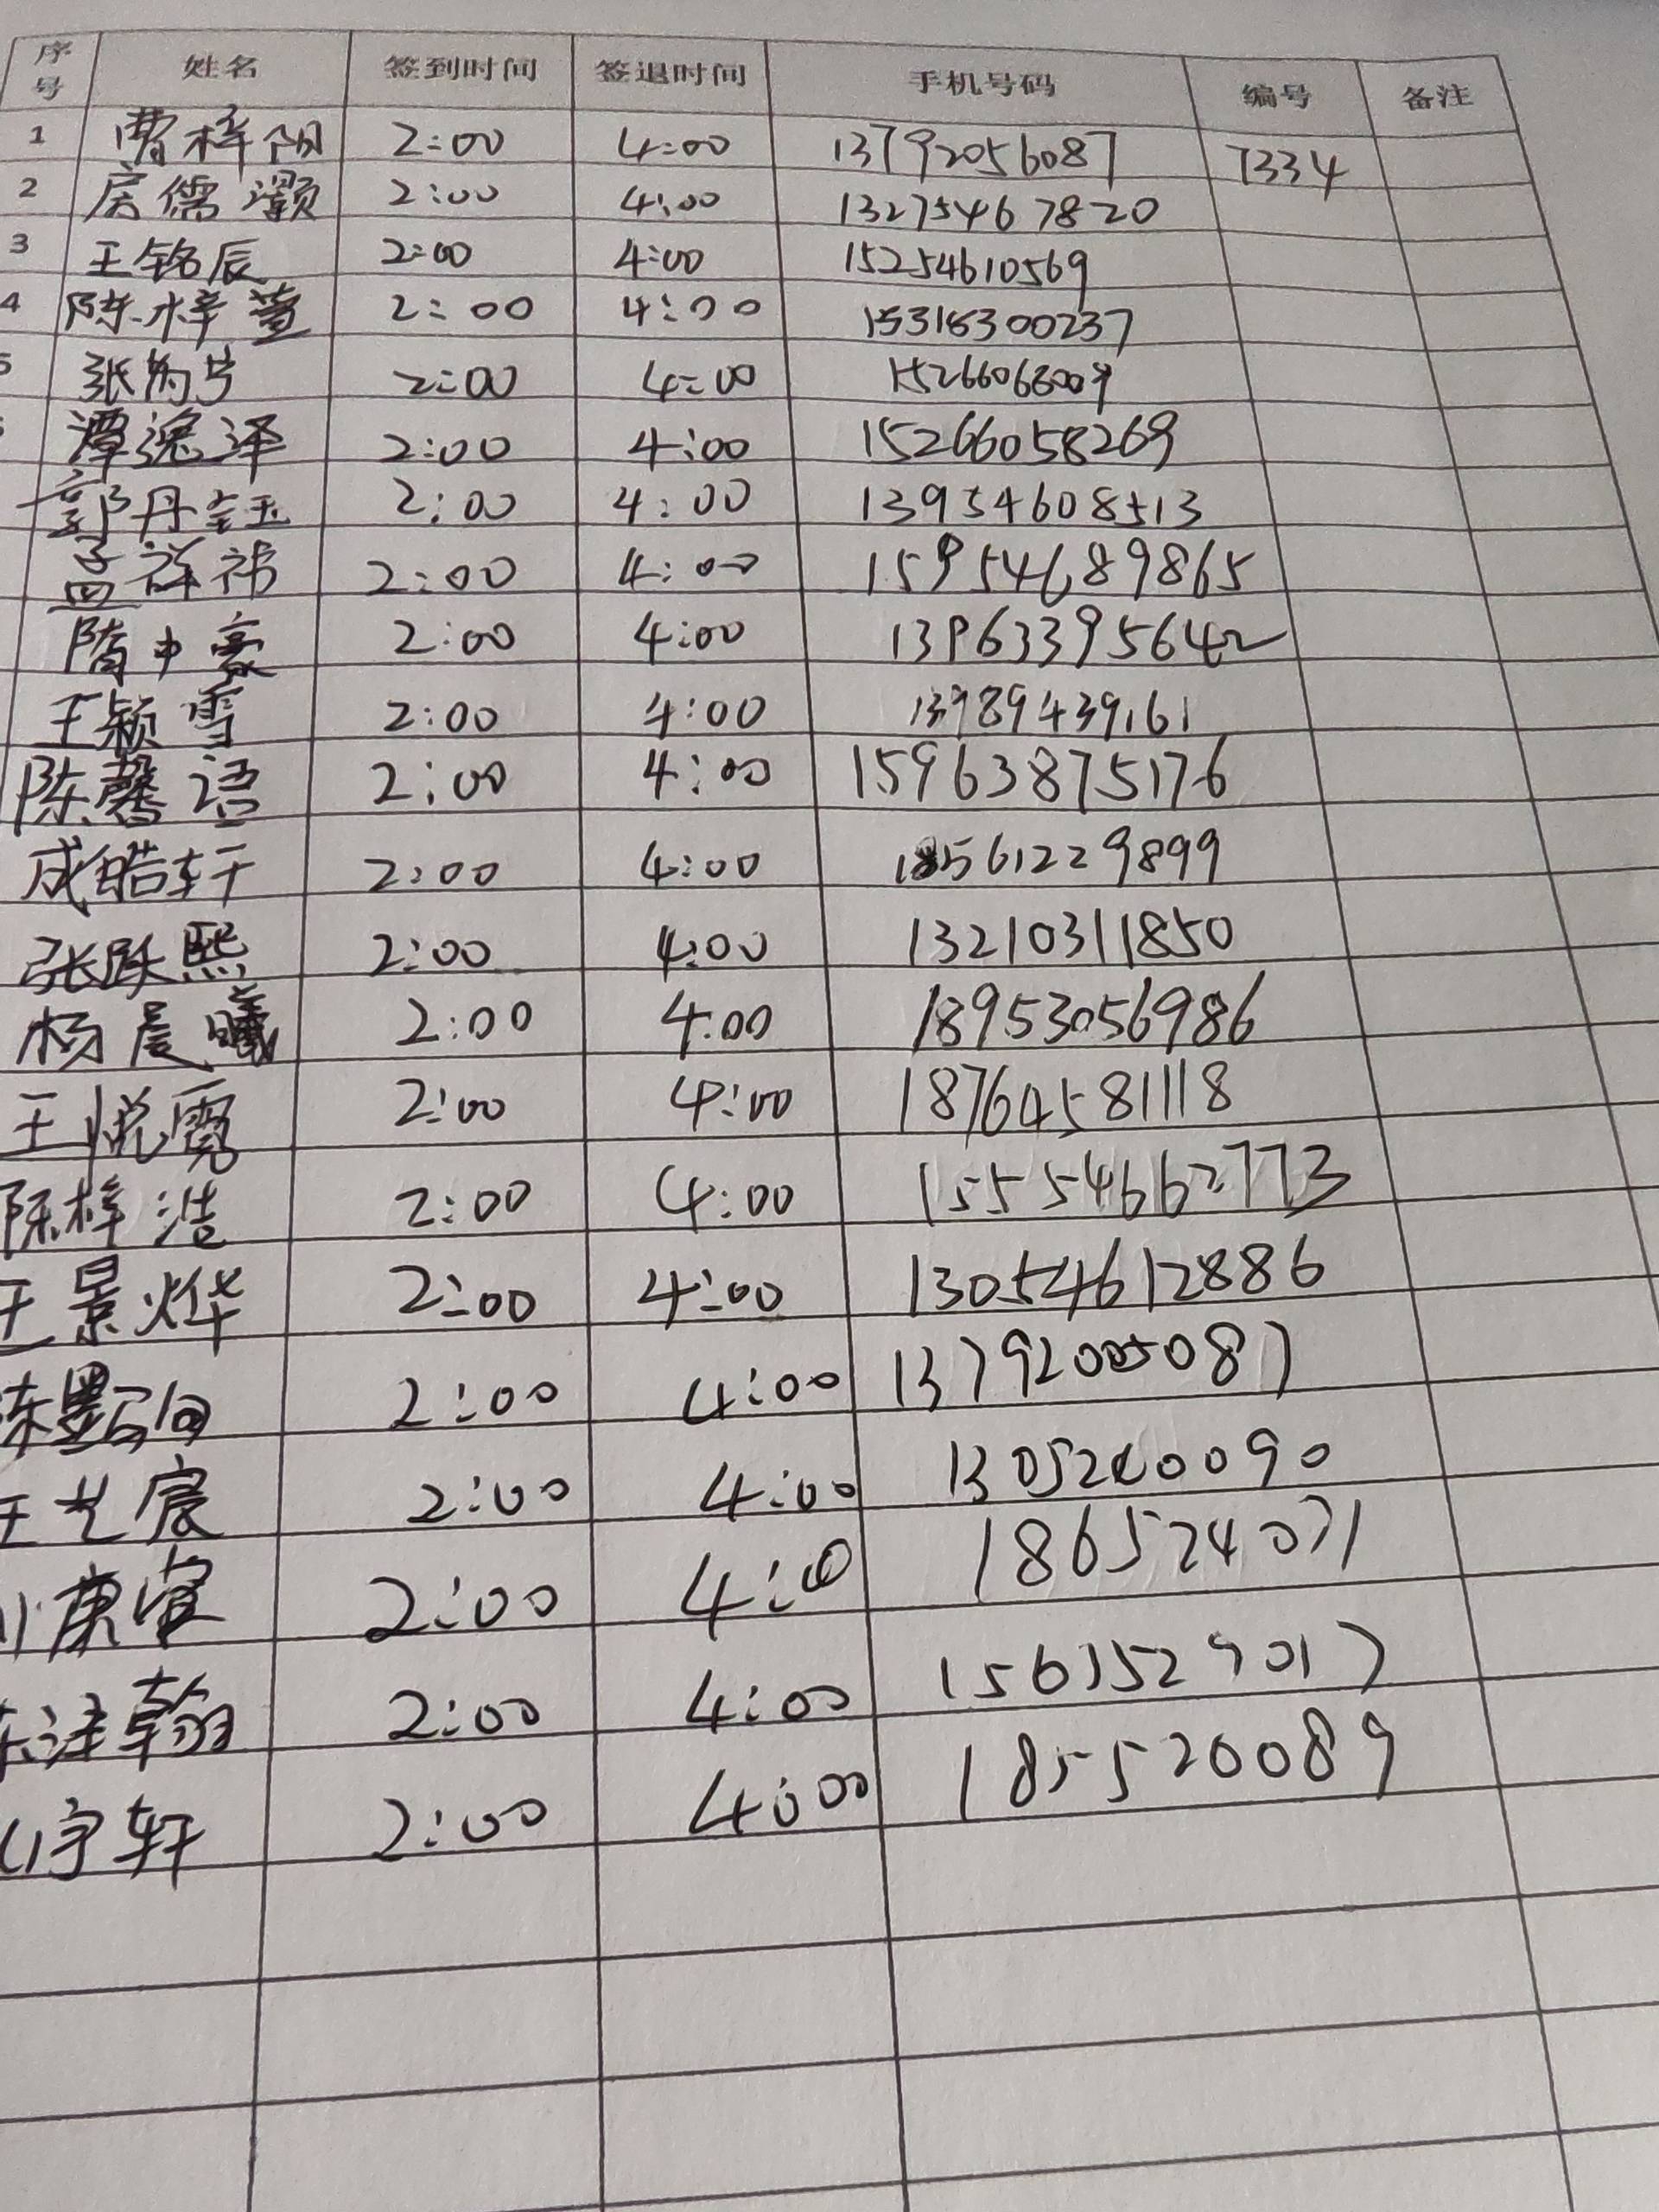 序号 姓名 签到时间 签退时间 手机号码 编号 备注
1 曹梓阳 2:00 4:00 13792056087 7334
2 房儒灏 2:00 4:00 13275467820
3 王铭辰 2:00 4:00 15254610569
4 陈梓萱 2:00 4:00 15315300237
张为 2:00 4:00
潭逸泽 2:00 4:00 15266058269
郭丹钰 2:00 4:00 13954608513
孟祥祎 2:00 4:00 15954689865
隋中豪 2:00 4:00 13963395642
王颖雪 2:00 4:00 13989439161
陈馨语 2:00 4:00 15963875176
成皓轩 2:00 4:00 18561229899
张跃熙 2:00 4:00 13210311850
杨晨曦 2:00 4:00 18953056986
王悦霓 2:00 4:00 18764581118
陈梓浩 2:00 4:00 15554662773
王景烨 2:00 4:00 13054612886
2:00 4:00
王艺宸 2:00 4:00
2:00 4:00 1865724071
2:00 4:00
宇轩 2:00 4:00 185520089